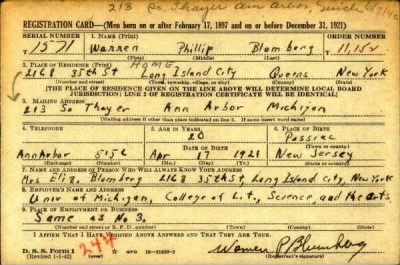 213 So. Thayer Ann Arbor, Mich
REGISTRATION CARD—(Men born on or after February 17, 1897 and on or before December 31, 1921)
SERIAL NUMBER 1. NAME (Print) ORDER NUMBER
1571 Warren Phillip Blomberg 11,152
(First) (Middle) (Last)
2. PLACE OF RESIDENCE (Print) HOME
2168 35th St Long Island City Queens New York
(Number and street) (Town, township, village, or city) (County) (State)
[THE PLACE OF RESIDENCE GIVEN ON THE LINE ABOVE WILL DETERMINE LOCAL BOARD
JURISDICTION; LINE 2 OF REGISTRATION CERTIFICATE WILL BE IDENTICAL]
3. MAILING ADDRESS
213 So Thayer Ann Arbor Michigan
[Mailing address if other than place indicated on line 2. If same insert word same]
4. TELEPHONE 5. AGE IN YEARS 6. PLACE OF BIRTH
20 Passaic
DATE OF BIRTH (Town or county)
Ann Arbor 5152 Apr 17 1921 New Jersey
(Exchange) (Number) (Mo.) (Day) (Yr.) (State or country)
7. NAME AND ADDRESS OF PERSON WHO WILL ALWAYS KNOW YOUR ADDRESS
Mrs Eliz. Blomberg 2168 35th St, Long Island City, New York
8. EMPLOYER'S NAME AND ADDRESS
Univ of Michigan, College of Lit., Science, and the Arts
9. PLACE OF EMPLOYMENT OR BUSINESS
Same as No 3.
(Number and street or R. F. D. number) (Town) (County) (State)
I AFFIRM THAT I HAVE VERIFIED ABOVE ANSWERS AND THAT THEY ARE TRUE.
D. S. S. Form 1
(Revised 1-1-42) (over) 16—21630-2
244
Warren P Blomberg
(Registrant's signature)